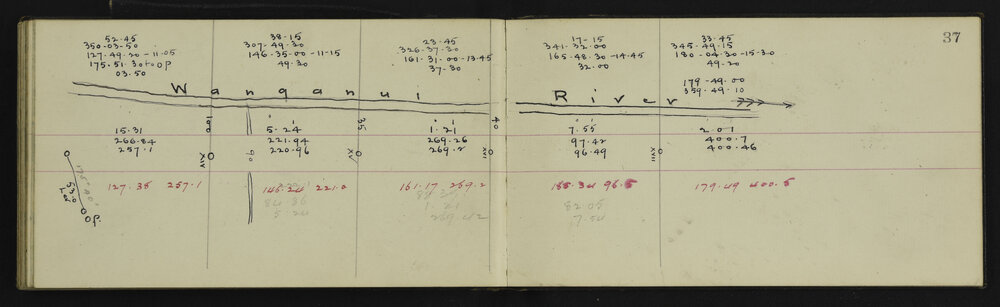 37
52.45
350-03-50
127-49-20-11.05
03.50
38-15
307-49-20
146-35-00-11-15
49.30
23-45
326-37-30
161-31-00-13-45
37-30
17-15
341-32-00
165-48-30-14-45
32-00
33-45
345-49-15
180-04-20-15-30
49-20
179-49-00
359-49-10
Wanganui River
15.31
266.84
257.1
XIV
90
5.24
221.94
220.96
35
XV
1.21
269.26
269.2
40
XVI
7.55
97.42
96.49
XVII
2.01
400.7
400.46
127.38 257.1
146.24 221.0
161.17 269.2
185.34 96.5
179.49 400.5
OP.
84 36
5.24
1.21
269.42
82.05
7.54